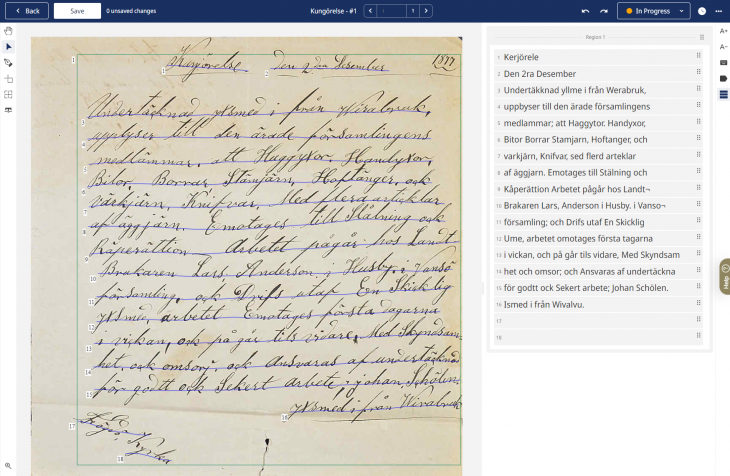 Back
Save
0 unsaved changes
Kungörelse - #1
1
In Progress
Kerjörelse Den 2 dra Desember 1877
Undertäcknad ysmed i från Wirabruk,
upplyser till den ärade försammlingens
medlämmar, att Haggyxor, Handyxor,
Bitor, Borrar Stämjärn, Hoftänger, och
värkjärn, Knifvar, Med flera articklar
af äggjärn. Emotages till Stålning och
Råperättion Arbetet pågår hos Landt
Brakaren Lars, Anderson, i Husby, i Vansö
församling, och Drifs utaf En Skicklig
ysmed, arbetet Emotages första dagarna
i vickan, och på går tils vidare, Med Skyndsam
het, och omsorj, och Ansvaras af undertäcknad
för godtt och Sekert arbete; Johan, Schölen.
ysmed i från Wirabruk
Kyrka
Region 1
1 Kerjörele
2 Den 2ra Desember
3 Undertäknad yllme i från Werabruk,
4 uppbyser till den ärade församlingens
5 medlammar; att Haggytor. Handyxor,
6 Bitor Borrar Stamjarn, Hoftanger, och
7 varkjärn, Knifvar, sed flerd arteklar
8 af äggjarn. Emotages till Stälning och
9 Kåperättion Arbetet pågår hos Landt¬
10 Brakaren Lars, Anderson i Husby. i Vanso¬
11 församling; och Drifs utaf En Skicklig
12 Ume, arbetet omotages första tagarna
13 i vickan, och på går tils vidare, Med Skyndsam
14 het och omsor; och Ansvaras af undertäckna
15 för godtt ock Sekert arbete; Johan Schölen.
16 Ismed i från Wivalvu.
17
18
A+
A-
Help